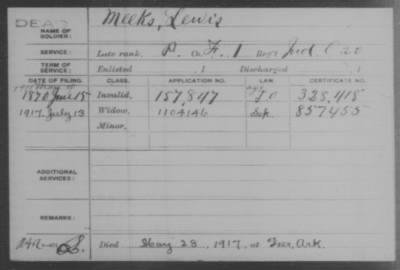 DEAD
NAME OF SOLDIER: Meeks, Lewis
SERVICE: Late rank, P. Co. F, 1 Reg't Ind. Cav
TERM OF SERVICE: Enlisted , 1 Discharged , 1
DATE OF FILING. CLASS. APPLICATION NO. LAW. CERTIFICATE NO.
1870 June 15 Invalid, 157,847 328,418
1917. July 13 Widow, 1104146 857455
Minor,
ADDITIONAL SERVICES:
REMARKS:
Died May 28, 1917, at Ark.